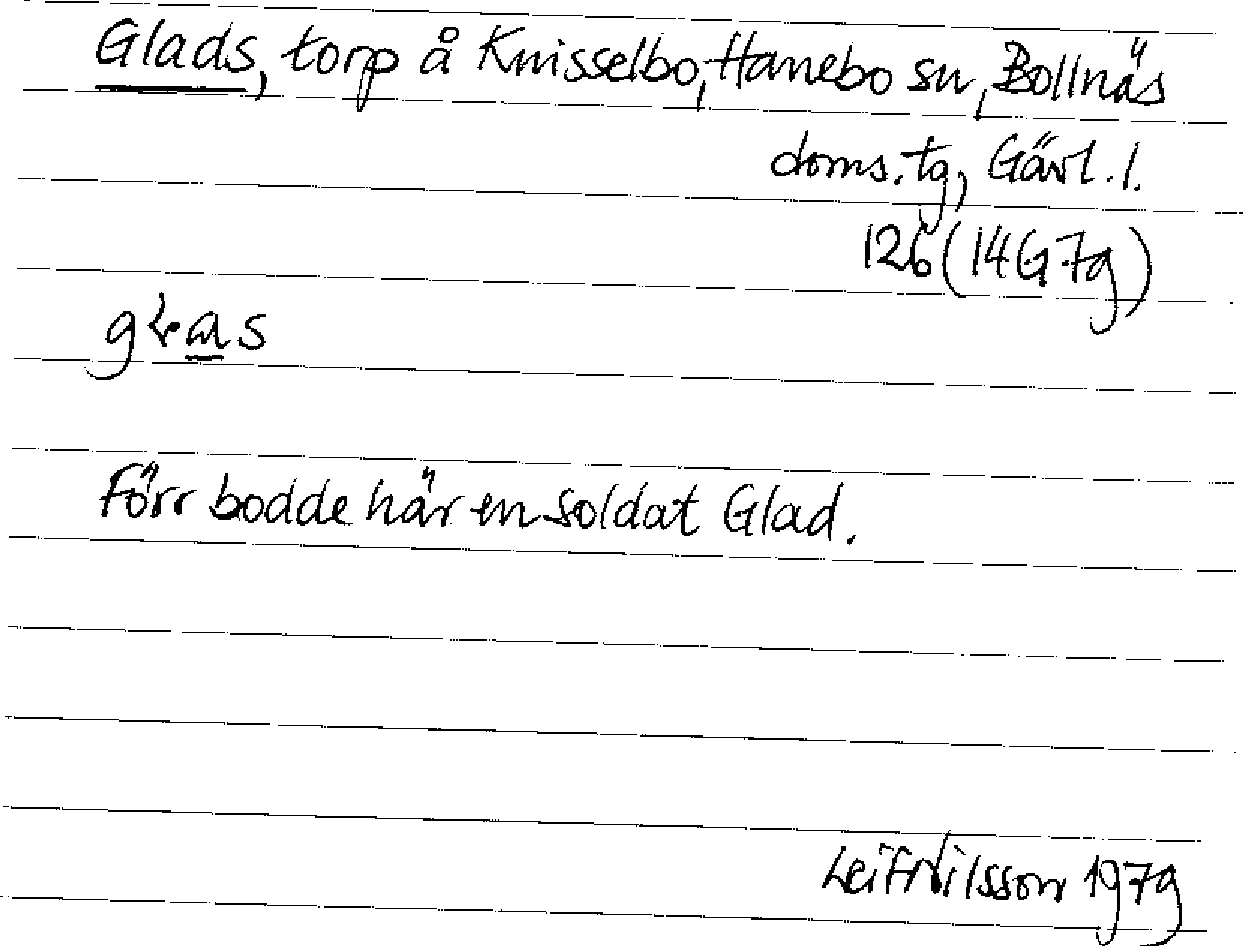 Glads, torp å Knisselbo, Hanebo sn, Bollnäs
doms.tg, Gävl.l.
126 (14G7g)
Förr bodde här en soldat Glad.
Leif Nilsson 1979